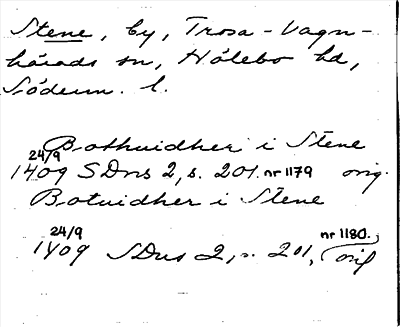 Stene, by, Trosa-Vagn-
härads sn, Hölebo hd,
Söderm. l.
Bothuidher i Stene
24/9
1409 SDns 2, s. 201. nr 1179 orig.
Botuidher i Stene
24/9 nr 1180.
1409 SDns 2, s. 201, orig